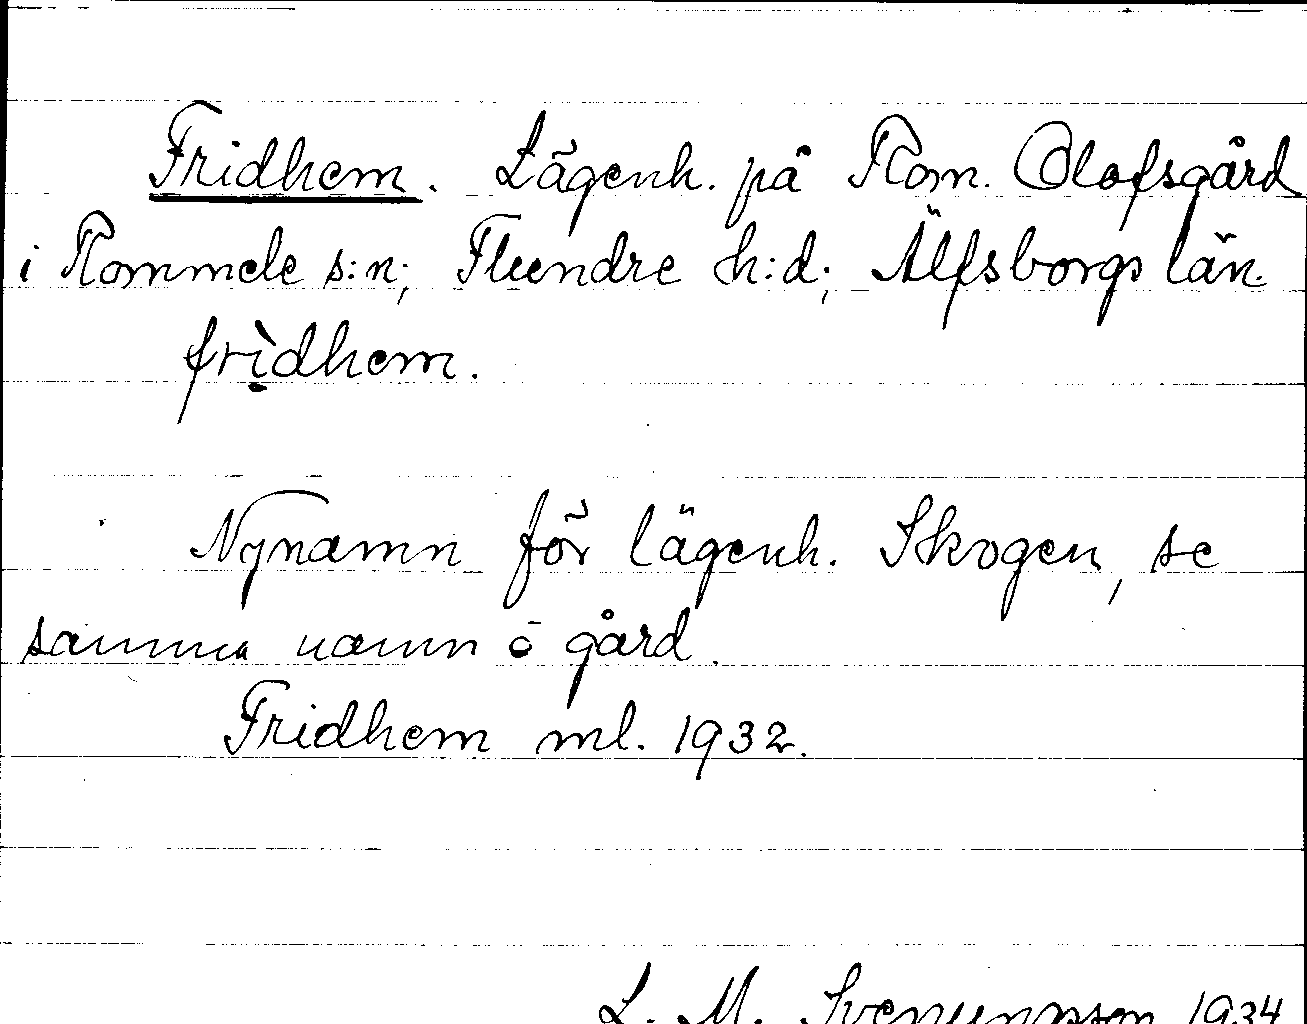 Fridhem. Lägenh. på Rom. Olofsgård
i Rommele s:n; Flundre h:d; Älfsborgs län.
frìdhem.
Nynamn för lägenh. Skogen, se
samma namn o gård.
Fridhem ml. 1932.
L. M. Svenungsson 1934